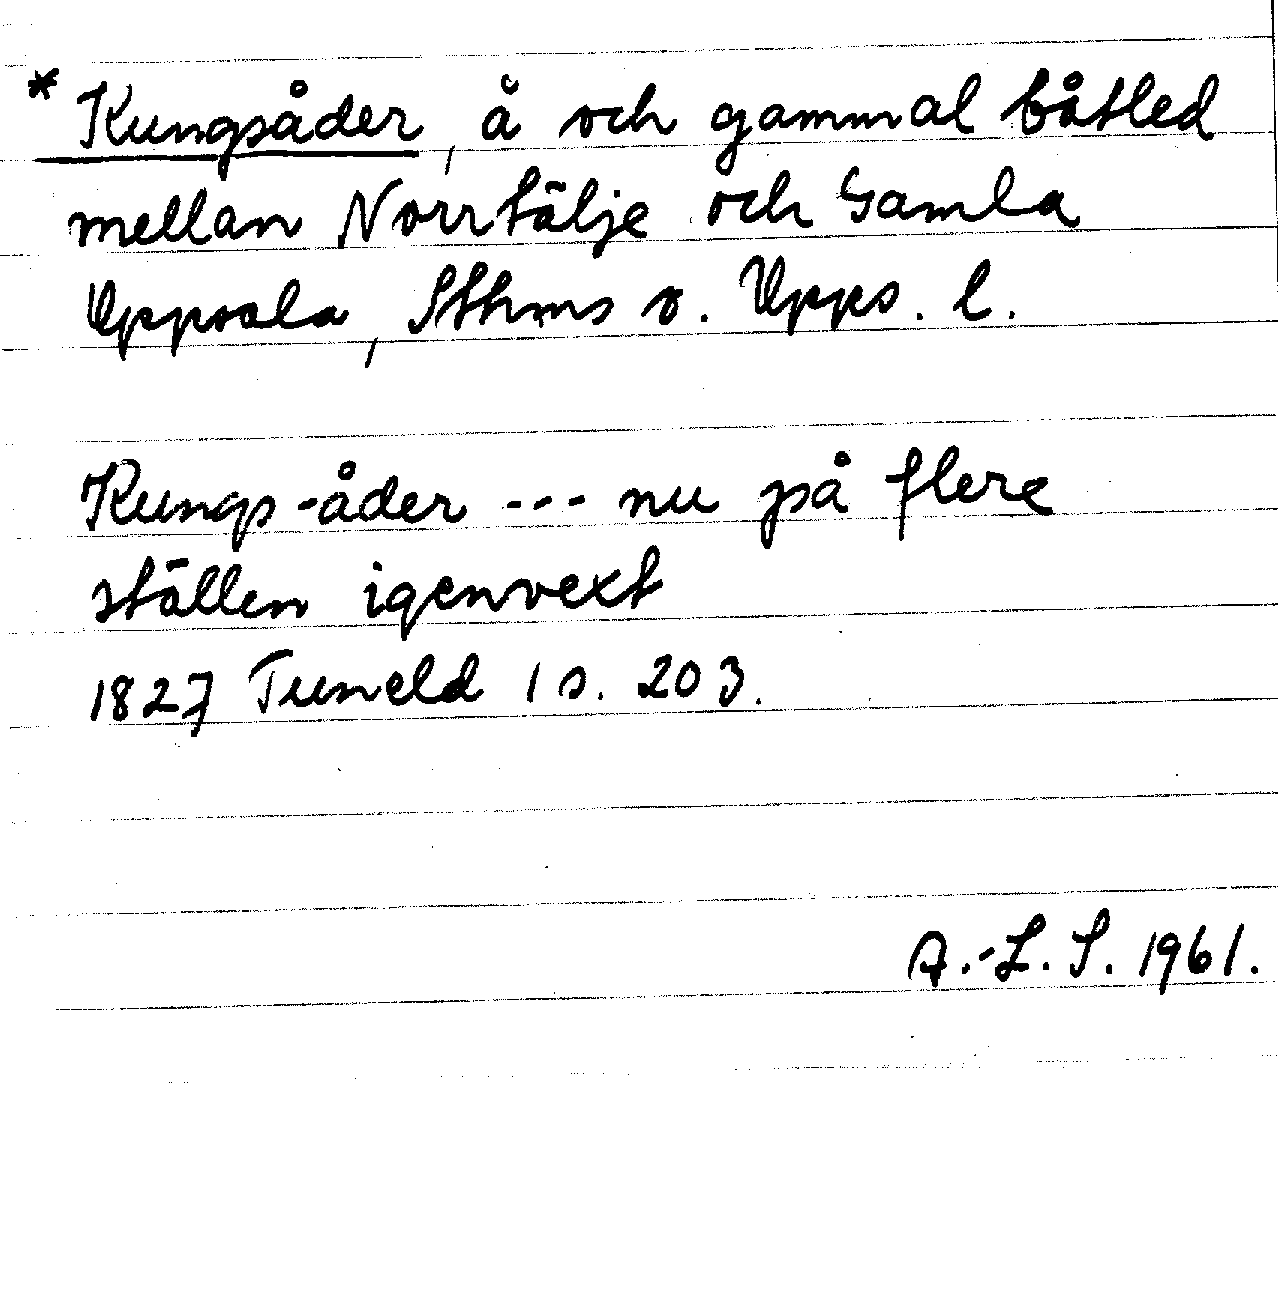 * Kungsåder, å och gammal båtled
mellan Norrtälje och Gamla
Uppsala, Sthms o. Upps. l.
Kungs-åder --- nu på flere
ställen igenvext
1827 Tuneld 1 s. 203.
A.-L. S. 1961.